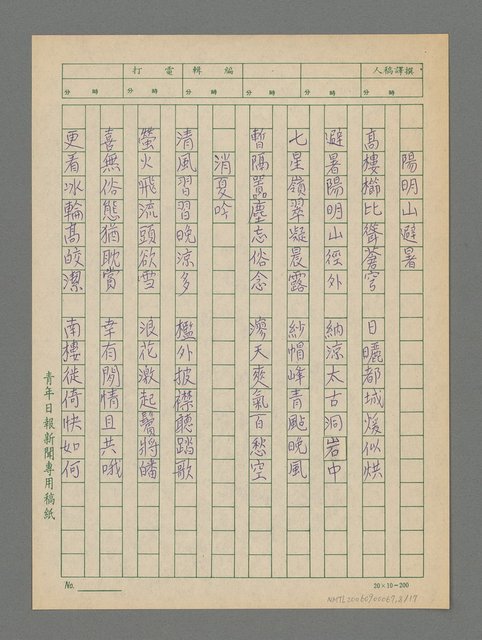 撰譯稿人
編輯
電打
時分
時分
時分
時分
時分
陽明山避暑
高樓櫛比聳蒼穹 日曬都城煖似烘
避暑陽明山徑外 納涼太古洞岩中
七星嶺翠凝晨露 紗帽峰青颭晚風
暫隔囂塵忘俗念 漻天爽氣百愁空
消夏吟
清風習習晚涼多 檻外披襟聽踏歌
螢火飛流頭欲雪 浪花激起鬢將皤
喜無俗態猶耽賞 幸有閒情且共哦
更看冰輪高皎潔 南樓徙倚快如何
青年日報新聞專用稿紙
No.
20×10=200
NMTL20060900067,2/17